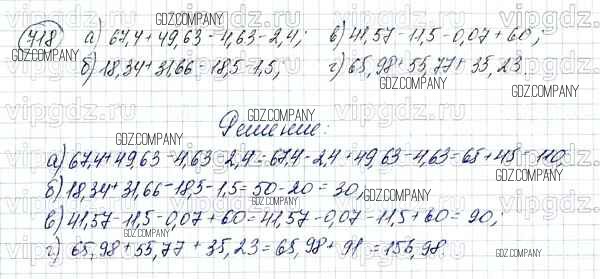 718 а) 67,4 + 49,63 - 4,63 - 2,4; в) 41,57 - 11,5 - 0,07 + 60;
б) 18,34 + 31,66 - 18,5 - 1,5; г) 65,98 + 55,77 + 35,23.
Решение:
а) 67,4 + 49,63 - 4,63 - 2,4 = 67,4 - 2,4 + 49,63 - 4,63 = 65 + 45 = 110,
б) 18,34 + 31,66 - 18,5 - 1,5 = 50 - 20 = 30,
в) 41,57 - 11,5 - 0,07 + 60 = 41,57 - 0,07 - 11,5 + 60 = 90,;
г) 65,98 + 55,77 + 35,23 = 65,98 + 91 = 156,98
GDZ.COMPANY
GDZ.COMPANY
GDZ.COMPANY
GDZ.COMPANY
GDZ.COMPANY
GDZ.COMPANY
GDZ.COMPANY
GDZ.COMPANY
GDZ.COMPANY
GDZ.COMPANY
GDZ.COMPANY
GDZ.COMPANY
vipgdz.ru